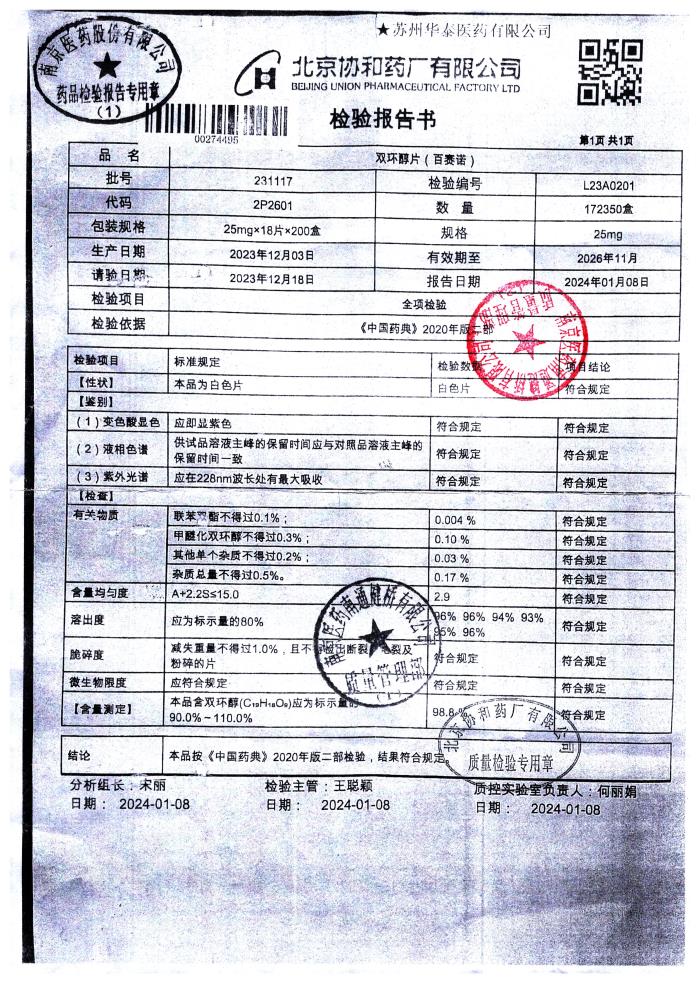 ★苏州华泰医药有限公司
南京医药股份有限公司
药品检验报告专用章
(1)
北京协和药厂有限公司
BEIJING UNION PHARMACEUTICAL FACTORY LTD
00274495
检验报告书
第1页 共1页
品 名 双环醇片（百赛诺）
批号 231117 检验编号 L23A0201
代码 2P2601 数 量 172350盒
包装规格 25mg×18片×200盒 规格 25mg
生产日期 2023年12月03日 有效期至 2026年11月
请验日期 2023年12月18日 报告日期 2024年01月08日
检验项目 全项检验
检验依据 《中国药典》2020年版二部
检验项目 标准规定 检验数据 项目结论
【性状】 本品为白色片 白色片 符合规定
【鉴别】
（1）变色酸显色 应即显紫色 符合规定 符合规定
（2）液相色谱 供试品溶液主峰的保留时间应与对照品溶液主峰的
保留时间一致 符合规定 符合规定
（3）紫外光谱 应在228nm波长处有最大吸收 符合规定 符合规定
【检查】
有关物质 联苯双酯不得过0.1%； 0.004 % 符合规定
甲醚化双环醇不得过0.3%； 0.10 % 符合规定
其他单个杂质不得过0.2%； 0.03 % 符合规定
杂质总量不得过0.5%。 0.17 % 符合规定
含量均匀度 A+2.2S≤15.0 2.9 符合规定
溶出度 应为标示量的80% 96% 96% 94% 93%
95% 96% 符合规定
脆碎度 减失重量不得过1.0%，且不得检出断裂、龟裂及
粉碎的片 符合规定 符合规定
微生物限度 应符合规定 符合规定 符合规定
【含量测定】 本品含双环醇(C₁₉H₁₈O₉)应为标示量的
90.0%～110.0% 98.8% 符合规定
南京医药南通健桥有限公司
质量管理部
北京协和药厂有限公司
质量检验专用章
结论 本品按《中国药典》2020年版二部检验，结果符合规定。
分析组长：宋丽 检验主管：王聪颖 质控实验室负责人：何丽娟
日期： 2024-01-08 日期： 2024-01-08 日期： 2024-01-08